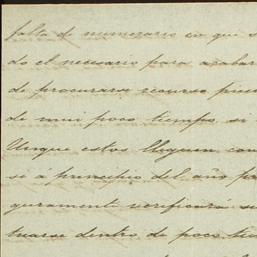 falta de numerario en que s
do el necesario para acabar
de procurarse recursos pecu
de mui poco tiempo, si
Unque estos lleguen con
si á principio del año pa
guramente verificará su
tuarse dentro de poco tie